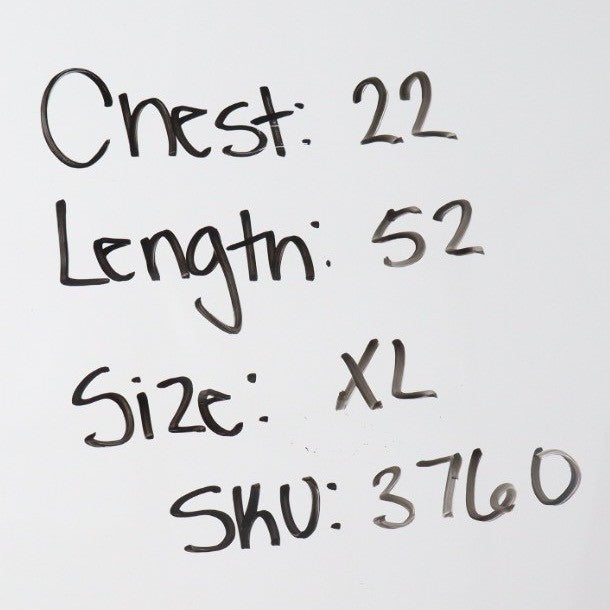 Chest: 22
Length: 52
Size: XL
SKU: 3760